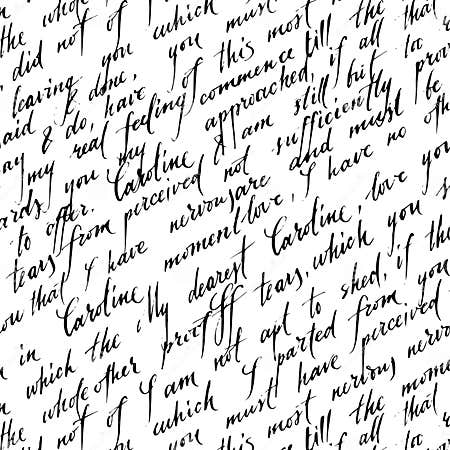 the whole of which
did not of you must
leaving you this most the that
said & done, have of commence till
ay & do, feeling approached, if all too
my real my & am still but prov
ards you Caroline not sufficiently be
to offer. perceived are and must othe
tears from nervous love, I have no
ow that I have moment Caroline, love you
Caroline My dearest which you s
n in which the proof If tears, shed, if the
the whole other not apt to from you
did not of I am I parted perceived
the which must have nervous nervo
you this most the mome
till that
if all